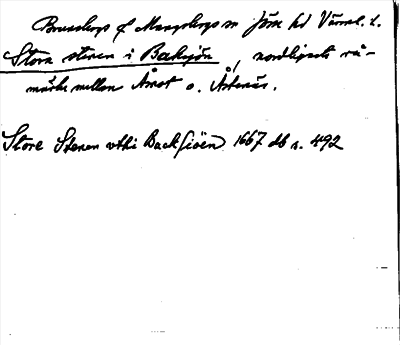 Brunskogs f Mangskogs sn Jösse hd Värml. l.
Stora stenen i Baksjön, nordligaste rå-
märke mellan Årset o. Årtenäs.
Store Stenen vthi Backsiöen 1667 db s. 492